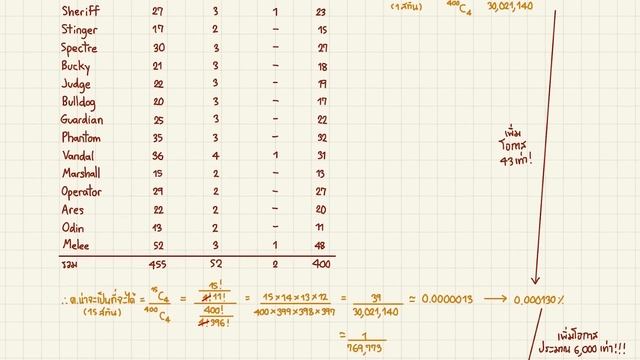 (1 สกิน) ⁴⁰⁰C₄ 30,021,140
Sheriff 27 3 1 23
Stinger 17 2 - 15
Spectre 30 3 - 27
Bucky 21 3 - 18
Judge 22 3 - 19
Bulldog 20 3 - 17
Guardian 25 3 - 22
Phantom 35 3 - 32
Vandal 36 4 1 31
Marshall 15 2 - 13
Operator 29 2 - 27
Ares 22 2 - 20
Odin 13 2 - 11
Melee 52 3 1 48
รวม 455 52 2 400
เพิ่ม
โอกาส
43 เท่า!
∴ ค.น่าจะเป็นที่จะได้ = ¹⁵C₄ / ⁴⁰⁰C₄ = (15! / 4!11!) / (400! / 4!396!) = 15×14×13×12 / 400×399×398×397 = 39 / 30,021,140 ≈ 0.0000013 → 0.000130%
(15 สกิน)
= 1 / 769,773
เพิ่มโอกาส
ประมาณ 6,000 เท่า!!!